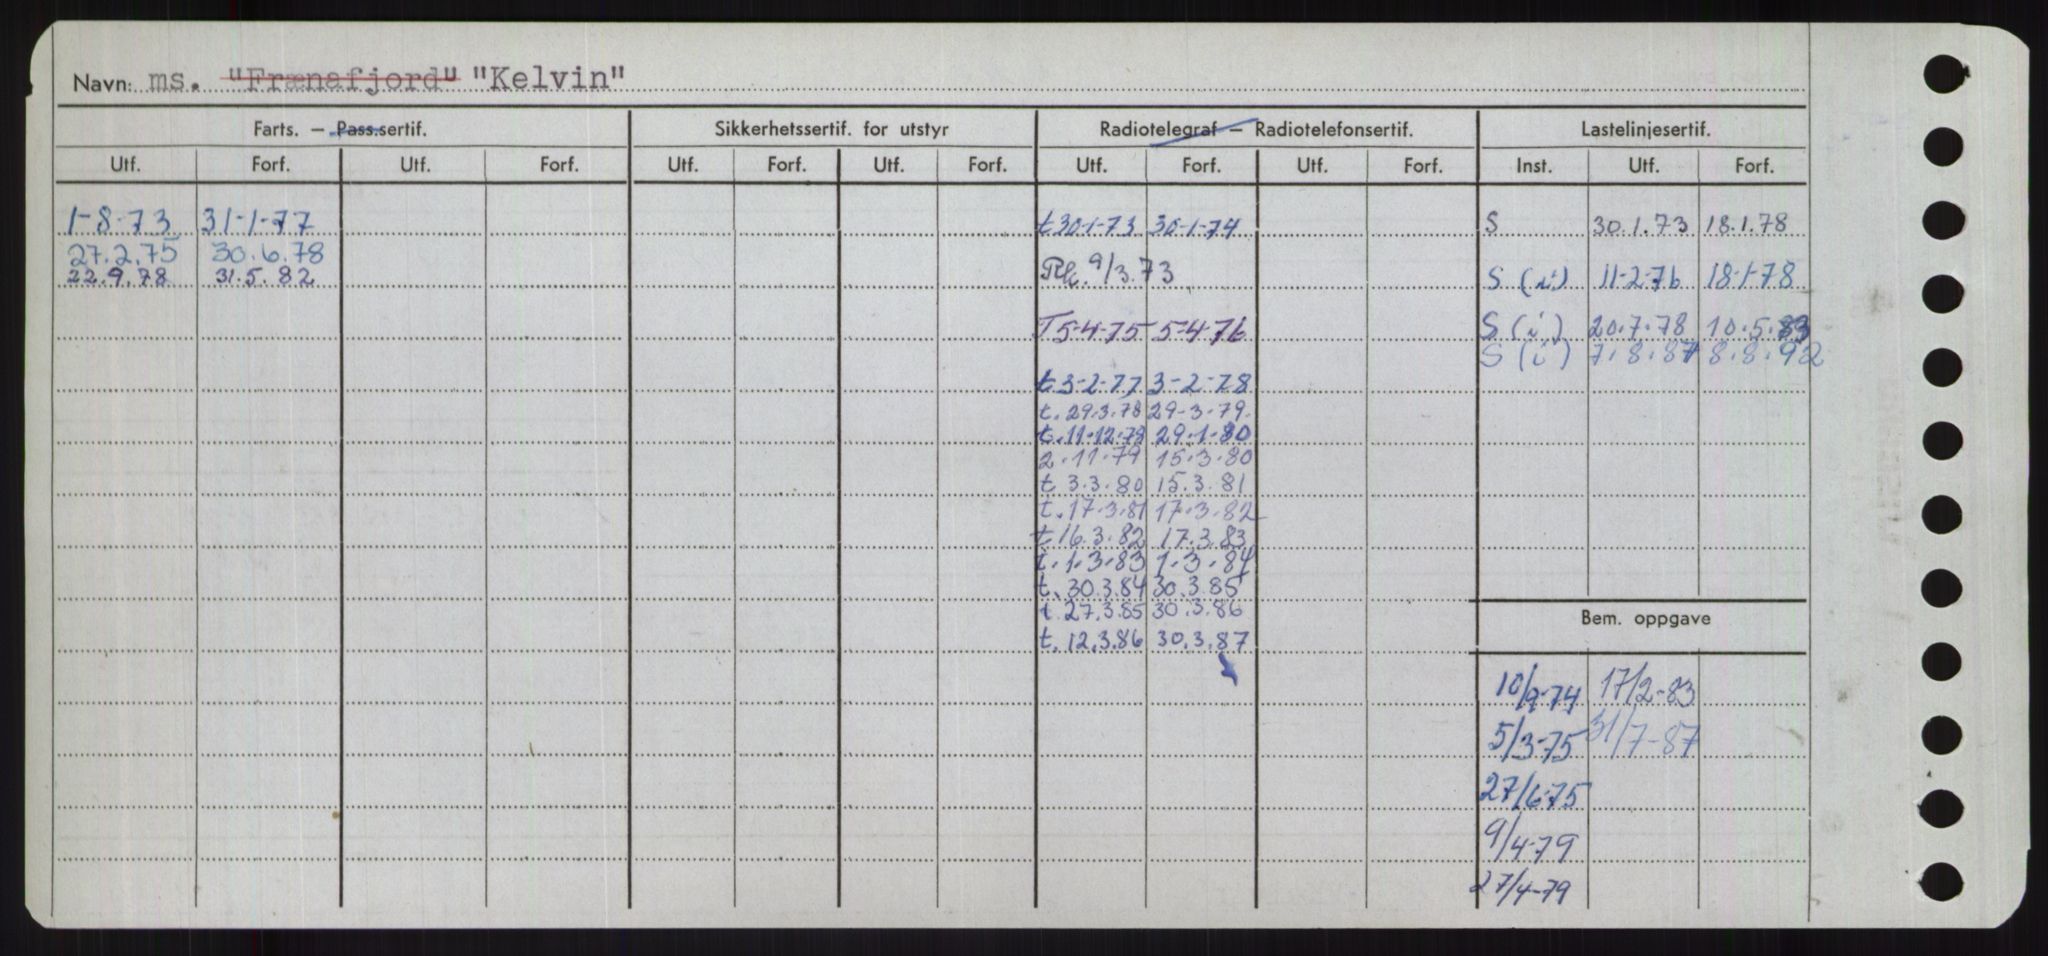 Navn: ms. "Frænafjord" "Kelvin"
Farts. — Pass.sertif. Sikkerhetssertif. for utstyr Radiotelegraf — Radiotelefonsertif. Lastelinjesertif.
Utf. Forf. Utf. Forf. Utf. Forf. Utf. Forf. Utf. Forf. Utf. Forf. Inst. Utf. Forf.
1-8-73 31-1-77 t 30-1-73 30-1-74 S 30.1.73 18.1.78
27.2.75 30.6.78
22.9.78 31.5.82 9/3.73 S (i) 11-2-76 18-1-78
T 5-4-75 5-4-76 S (i) 20.7.78 10.5.83
S (i) 7.8.87 8.8.92
t 3-2-77 3-2-78
t. 29.3.78 29-3-79.
t. 11-12-78 29-1-80
2.11.79 15.3.80
t 3.3.80 15.3.81
t. 17-3-81 17-3-82
t 16.3.82 17.3.83
t. 1.3-83 1-3-84
t. 30.3.84 30.3.85
t 27.3.85 30.3.86
t. 12.3.86 30.3.87
Bem. oppgave
10/9-74 17/2-83
5/3-75 31/7-87
27/6-75
9/4-79
27/4-79